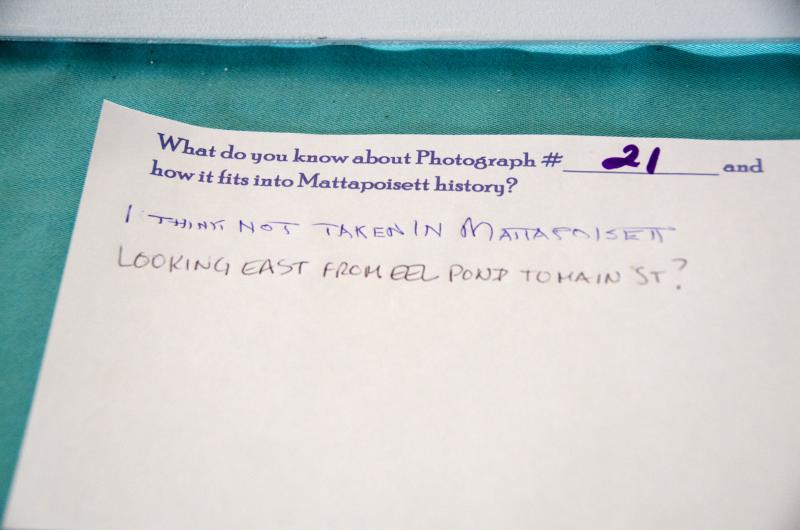 What do you know about Photograph # 21 and
how it fits into Mattapoisett history?
I THINK NOT TAKEN IN MATTAPOISETT
LOOKING EAST FROM EEL POND TO MAIN ST?